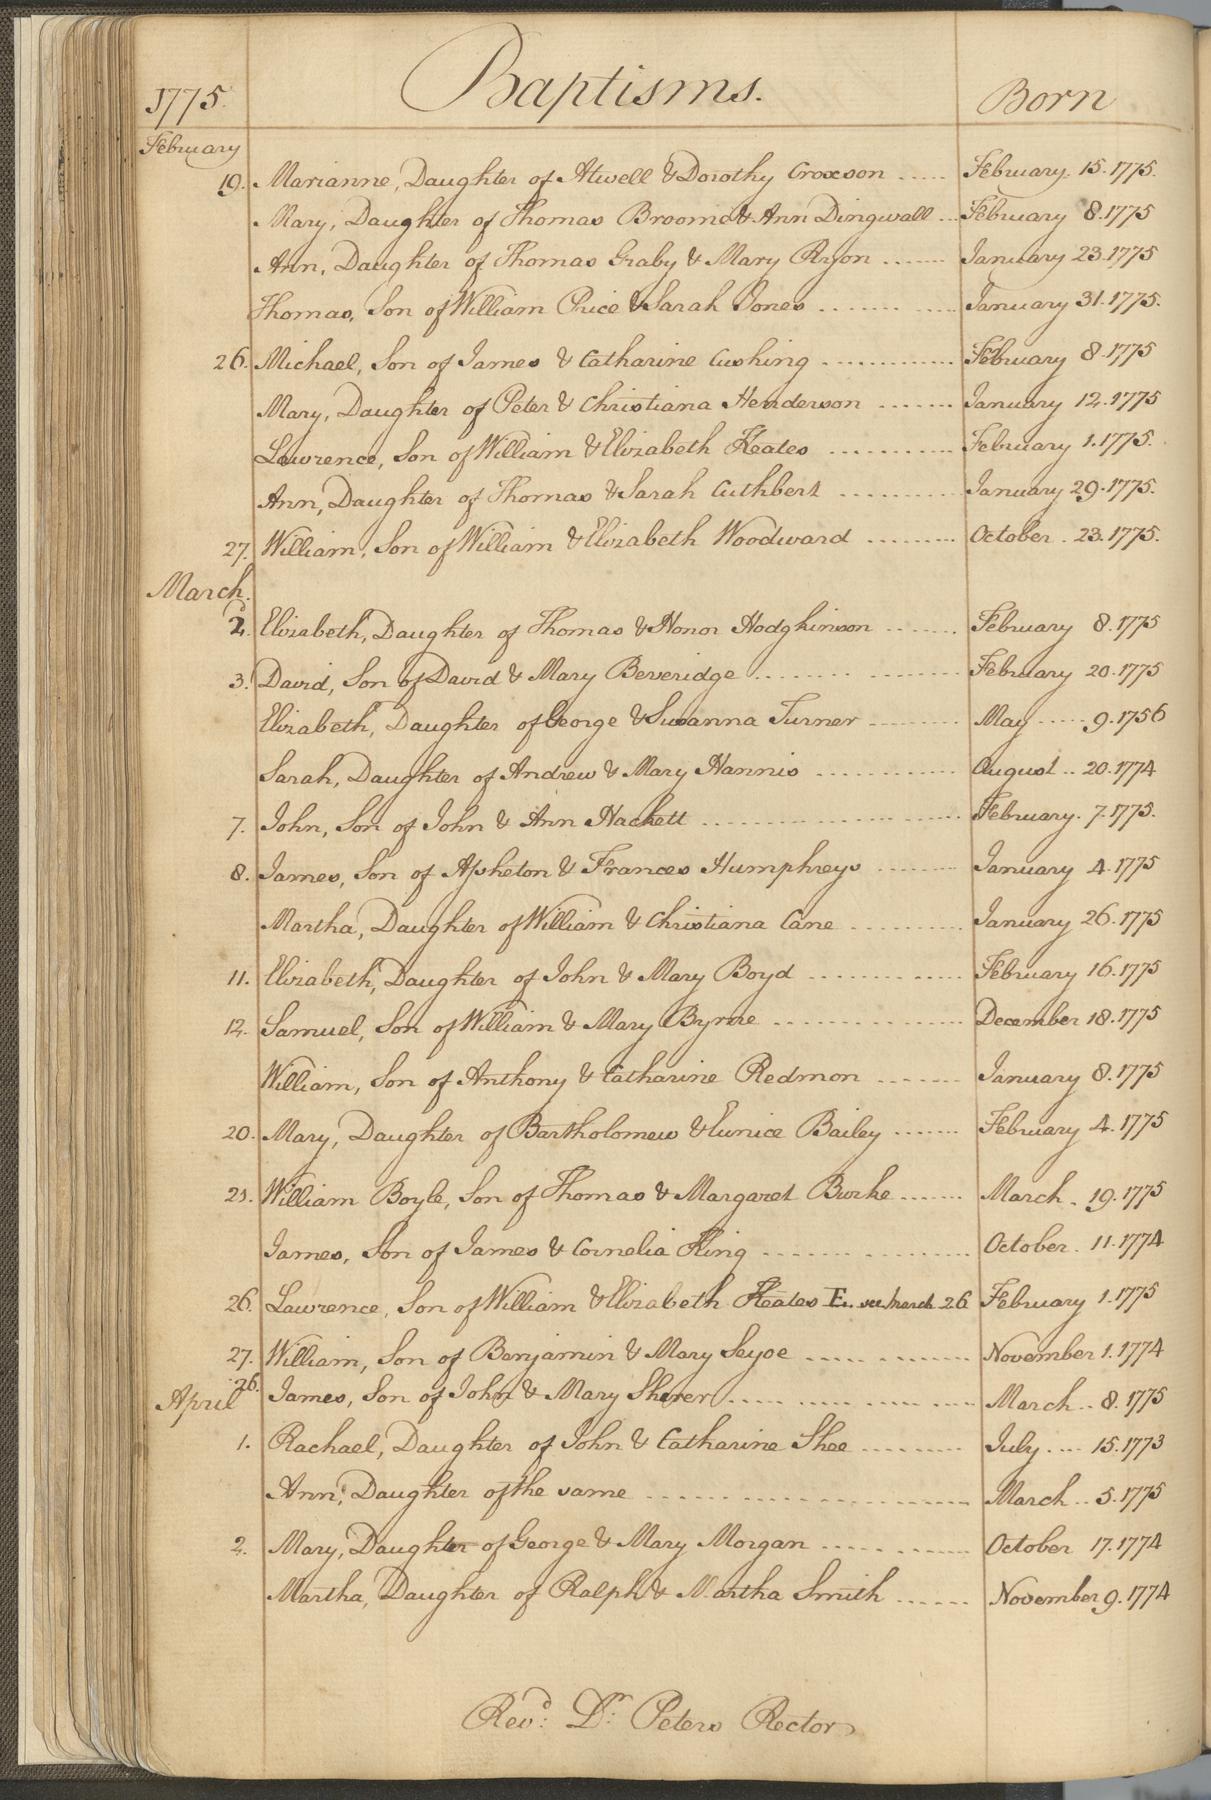 1775. Baptisms. Born
February
19. Marianne, Daughter of Atwell & Dorothy Croxson ..... February. 15. 1775.
Mary, Daughter of Thomas Broome & Ann Dingwall ... February 8. 1775
Ann, Daughter of Thomas Graby & Mary Ryon ....... January 23. 1775
Thomas, Son of William Price & Sarah Jones ............ January 31. 1775.
26. Michael, Son of James & Catharine Cushing ............ February 8. 1775
Mary, Daughter of Peter & Christiana Henderson ....... January 12. 1775
Lawrence, Son of William & Elizabeth Keates ........... February 1. 1775.
Ann, Daughter of Thomas & Sarah Cuthbert .......... January 29. 1775.
27. William, Son of William & Elizabeth Woodward ......... October . 23. 1775.
March.
2d. Elizabeth, Daughter of Thomas & Honor Hodghinson ....... February 8. 1775
3. David, Son of David & Mary Beveridge ............... February 20. 1775
Elizabeth, Daughter of George & Susanna Turner ......... May ..... 9. 1756
Sarah, Daughter of Andrew & Mary Hannis ............ August .. 20. 1774
7. John, Son of John & Ann Hackett .................... February. 7. 1775.
8. James, Son of Assheton & Frances Humphreys ........ January 4. 1775
Martha, Daughter of William & Christiana Cane .......... January 26. 1775
11. Elizabeth, Daughter of John & Mary Boyd ............. February 16. 1775
12. Samuel, Son of William & Mary Byrne .............. December 18. 1775
William, Son of Anthony & Catharine Redmon ....... January 8. 1775
20. Mary, Daughter of Bartholomew & Eunice Bailey ...... February 4. 1775
21. William Boyle, Son of Thomas & Margaret Burke ...... March . 19. 1775
James, Son of James & Cornelia King ................ October . 11. 1774
26. Lawrence, Son of William & Elizabeth Keates E. see March 26 February 1. 1775
27. William, Son of Benjamin & Mary Seyoe ............ November 1. 1774
26. James, Son of John & Mary Sherer .................... March .. 8. 1775
April
1. Rachael, Daughter of John & Catharine Shee ......... July .... 15. 1773
Ann, Daughter of the same ......................... March .. 5. 1775
2. Mary, Daughter of George & Mary Morgan ........... October 17. 1774
Martha, Daughter of Ralph & Martha Smith ...... November 9. 1774
Revd: Dr: Peters Rector